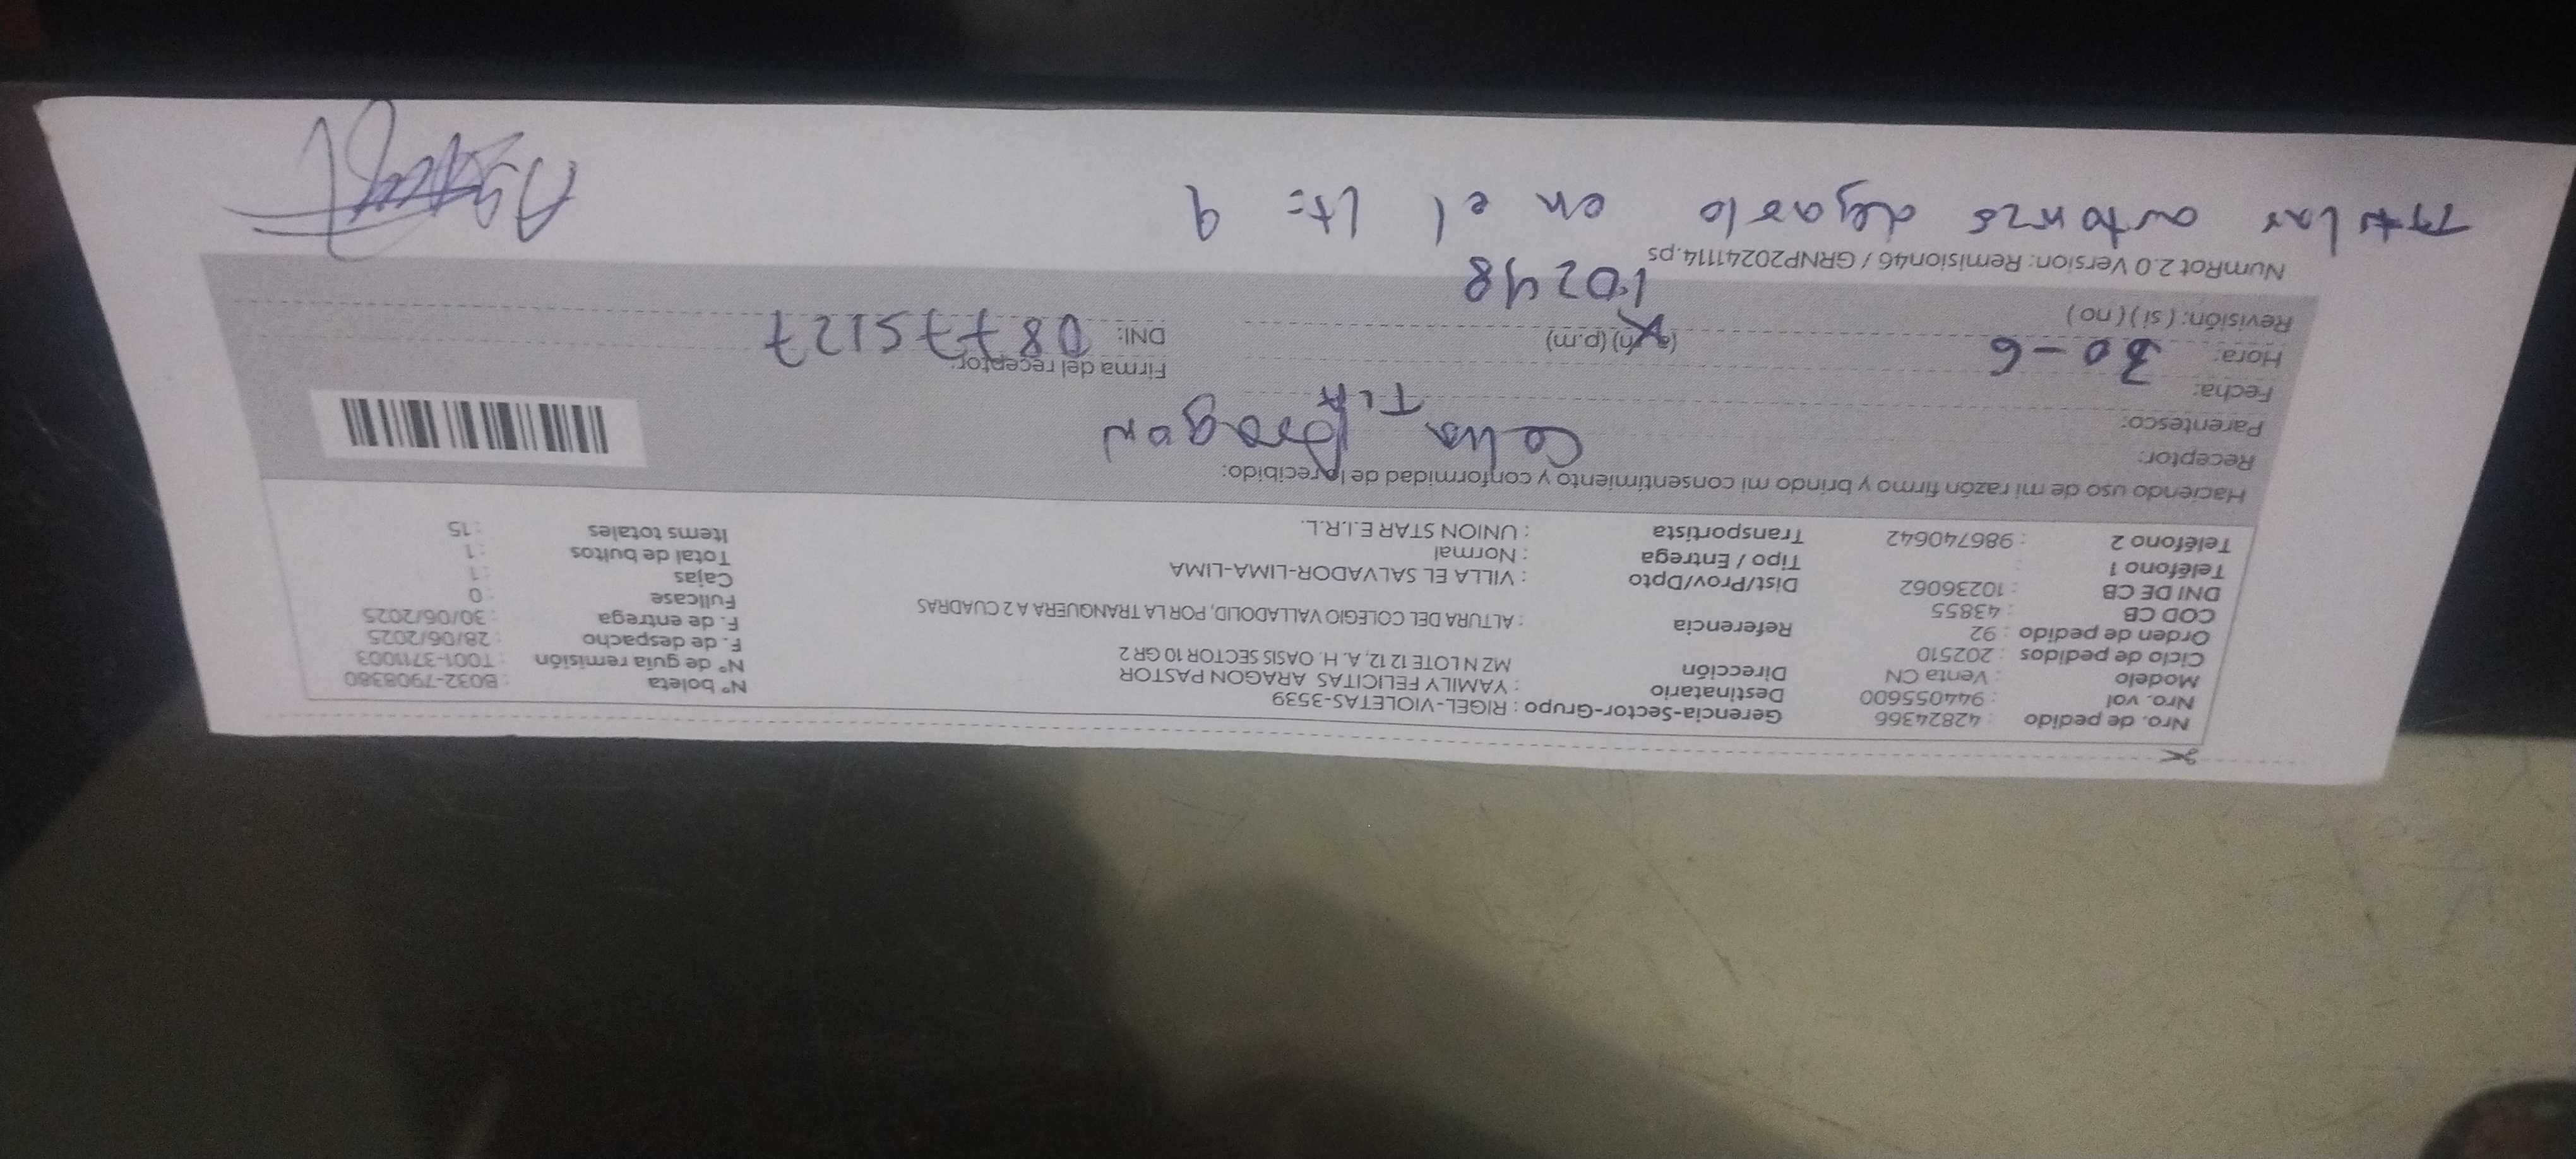 Nro. de pedido : 42824366 Gerencia-Sector-Grupo : RIGEL-VIOLETAS-3539
Nro. vol : 944055600 Destinatario : YAMILY FELICITAS ARAGON PASTOR N° boleta : B032-7908380
Modelo : Venta CN Dirección MZ N LOTE 12 12, A. H. OASIS SECTOR 10 GR 2 N° de guía remisión : T001-3711003
Ciclo de pedidos : 202510 F. de despacho : 28/06/2025
Orden de pedido : 92 Referencia : ALTURA DEL COLEGIO VALLADOLID, POR LA TRANQUERA A 2 CUADRAS F. de entrega : 30/06/2025
COD CB : 43855 Fullcase : 0
DNI DE CB : 10236062 Dist/Prov/Dpto : VILLA EL SALVADOR-LIMA-LIMA Cajas : 1
Teléfono 1 : Tipo / Entrega : Normal Total de bultos : 1
Teléfono 2 : 986740642 Transportista : UNION STAR E.I.R.L. Items totales : 15
Haciendo uso de mi razón firmo y brindo mi consentimiento y conformidad de lo recibido:
Receptor: Celia Aragon
Parentesco: TIA
Fecha: 30-6 Firma del receptor:
Hora: (a.m) (p.m) DNI: 08775127
Revisión: ( si ) ( no ) 10248
NumRot 2.0 Version: Remision46 / GRNP20241114.ps
titular autorizo dejarlo en el Lt: 9